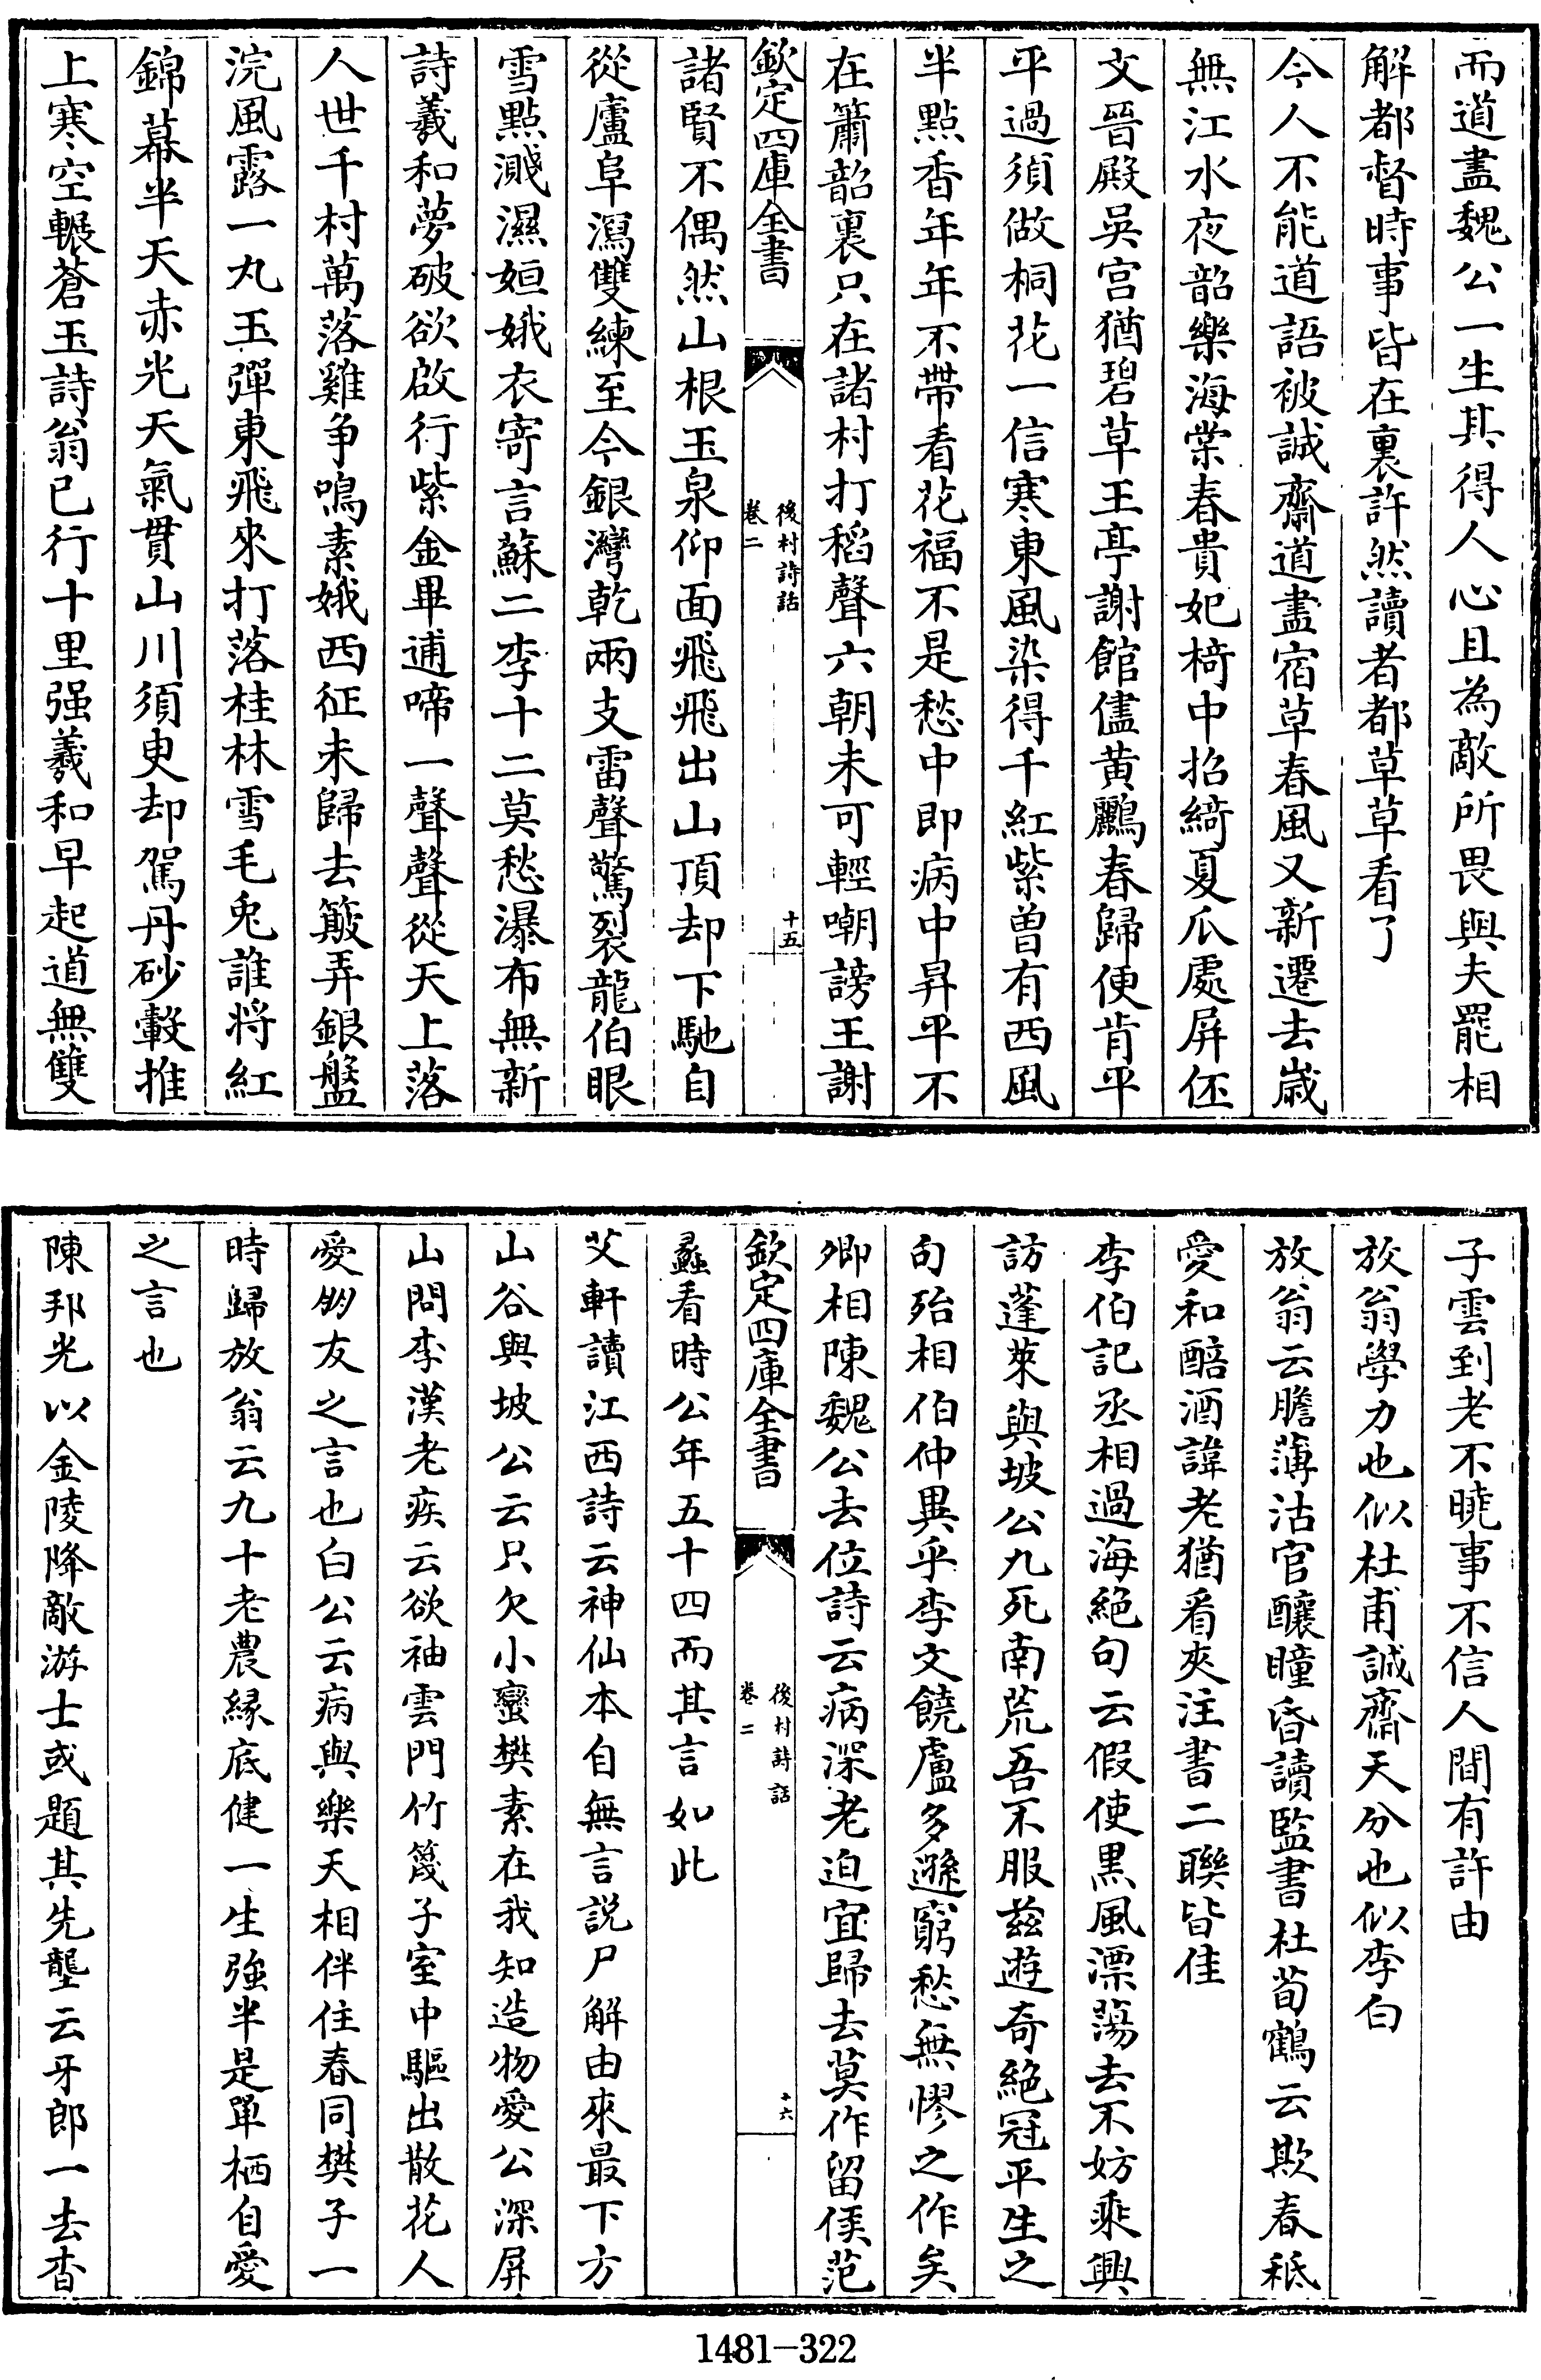 而道盡魏公一生其得人心且為敵所畏與夫罷相
解都督時事皆在裏許然讀者都草草看了
今人不能道語被誠齋道盡宿草春風又新遷去歲
無江水夜韶樂海棠春貴妃椅中招綺夏瓜處屏伾
文晉殿吳宮猶碧草王亭謝館儘黃鸝春歸便肯平
平過須做桐花一信寒東風染得千紅紫曾有西風
半點香年年不帶看花福不是愁中即病中昇平不
在簫韶裏只在諸村打稻聲六朝未可輕嘲謗王謝
欽定四庫全書
後村詩話
卷二
十五
諸賢不偶然山根玉泉仰面飛飛出山頂却下馳自
從廬阜瀉雙練至今銀灣乾兩支雷聲驚裂龍伯眼
雪點濺濕姮娥衣寄言蘇二李十二莫愁瀑布無新
詩羲和夢破欲啟行紫金畢逋啼一聲聲從天上落
人世千村萬落雞爭鳴素娥西征未歸去簸弄銀盤
浣風露一丸玉彈東飛來打落桂林雪毛兔誰將紅
錦幕半天赤光天氣貫山川須臾却駕丹砂轂推
上寒空輾蒼玉詩翁已行十里强羲和早起道無雙
子雲到老不曉事不信人間有許由
放翁學力也似杜甫誠齋天分也似李白
放翁云膽薄沽官釀瞳昏讀監書杜荀鶴云欺春秪
愛和醅酒諱老猶看夾注書二聯皆佳
李伯記丞相過海絕句云假使黑風漂蕩去不妨乘興
訪蓬萊與坡公九死南荒吾不服茲遊奇絕冠平生之
句殆相伯仲異乎李文饒盧多遜窮愁無憀之作矣
卿相陳魏公去位詩云病深老迫宜歸去莫作留侯范
欽定四庫全書
後村詩話
卷二
十六
蠡看時公年五十四而其言如此
艾軒讀江西詩云神仙本自無言説尸解由來最下方
山谷與坡公云只欠小蠻樊素在我知造物愛公深屏
山問李漢老疾云欲袖雲門竹篾子室中驅出散花人
愛朋友之言也白公云病與樂天相伴住春同樊子一
時歸放翁云九十老農緣底健一生強半是單栖自愛
之言也
陳邦光以金陵降敵游士或題其先壟云牙郎一去杳
1481—322